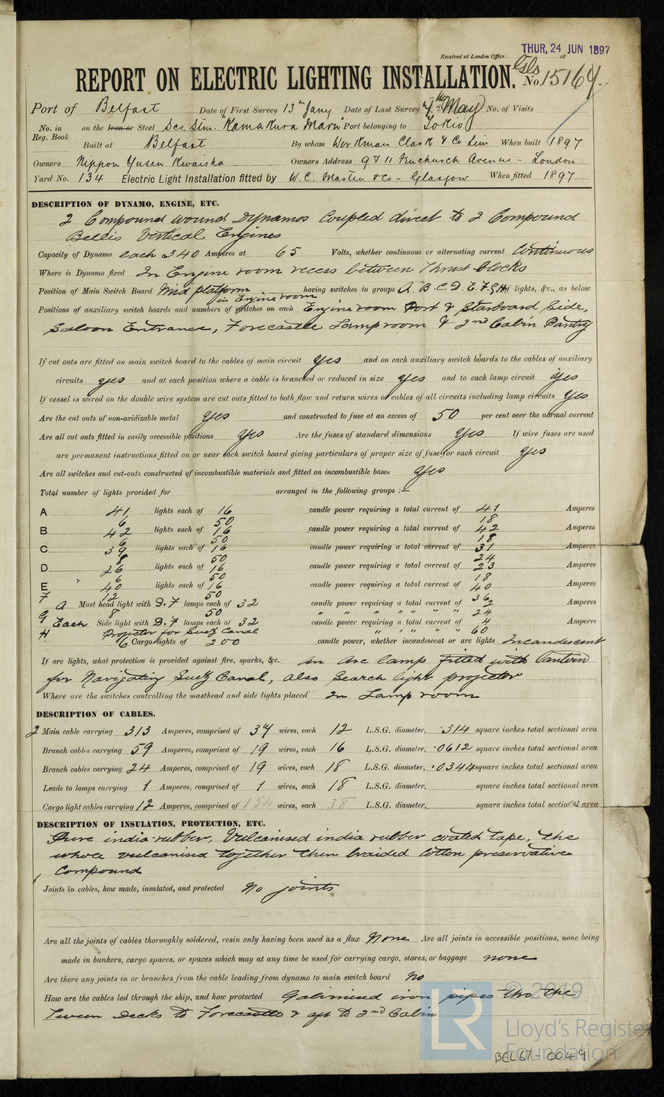 Received at London Office
THUR, 24 JUN 1897
18
REPORT ON ELECTRIC LIGHTING INSTALLATION. Gls No 15164.
Port of Belfast Date of First Survey 13th Jany Date of Last Survey 7th May No. of Visits
No. in Reg. Book on the Iron or Steel Scr. Stm. "Kamakura Maru" Port belonging to Tokio
Built at Belfast By whom Workman Clark & Co Lim When built 1897
Owners Nippon Yusen Kwaisha Owners Address 9 & 11 Fenchurch Avenue - London
Yard No. 134 Electric Light Installation fitted by W. C. Martin & Co - Glasgow When fitted 1897
DESCRIPTION OF DYNAMO, ENGINE, ETC.
2 Compound wound Dynamos Coupled direct to 2 Compound
Bellis Vertical Engines
Capacity of Dynamo each 340 Amperes at 65 Volts, whether continuous or alternating current Continuous
Where is Dynamo fixed In Engine room recess between Thrust blocks
Position of Main Switch Board Mid platform in Engine room having switches to groups A. B. C. D. E. F. G. H lights, &c., as below
Positions of auxiliary switch boards and numbers of switches on each Engine room Port & Starboard Side,
Saloon Entrance, Forecastle Lamproom & 2nd Cabin Pantry
If cut outs are fitted on main switch board to the cables of main circuit yes and on each auxiliary switch boards to the cables of auxiliary
circuits yes and at each position where a cable is branched or reduced in size yes and to each lamp circuit yes
If vessel is wired on the double wire system are cut outs fitted to both flow and return wires or cables of all circuits including lamp circuits yes
Are the cut outs of non-oxidizable metal yes and constructed to fuse at an excess of 50 per cent over the normal current
Are all cut outs fitted in easily accessible positions yes Are the fuses of standard dimensions yes If wire fuses are used
are permanent instructions fitted on or near each switch board giving particulars of proper size of fuse for each circuit yes
Are all switches and cut-outs constructed of incombustible materials and fitted on incombustible bases yes
Total number of lights provided for arranged in the following groups :—
A 41 lights each of 16 candle power requiring a total current of 41 Amperes
6 50 18
B 42 lights each of 16 candle power requiring a total current of 42 Amperes
6 50 18
C 39 lights each of 16 candle power requiring a total current of 31 Amperes
8 50 24
D 26 lights each of 16 candle power requiring a total current of 23 Amperes
6 50 18
E 40 lights each of 16 candle power requiring a total current of 40 Amperes
F 12 50 36
A Mast head light with D. F lamps each of 32 candle power requiring a total current of 2 Amperes
G 8 50 24
Each Side light with D. F lamps each of 32 candle power requiring a total current of 4 Amperes
H Projector for Suez Canal " " " " " 60
6 Cargo lights of 200 candle power, whether incandescent or arc lights incandescent
If arc lights, what protection is provided against fire, sparks, &c. An Arc Lamp fitted with lantern
for Navigating Suez Canal, also Search light projector
Where are the switches controlling the masthead and side lights placed In Lamp room
DESCRIPTION OF CABLES.
2 Main cable carrying 313 Amperes, comprised of 37 wires, each 12 L.S.G. diameter, .314 square inches total sectional area
Branch cables carrying 59 Amperes, comprised of 19 wires, each 16 L.S.G. diameter, .0612 square inches total sectional area
Branch cables carrying 24 Amperes, comprised of 19 wires, each 18 L.S.G. diameter, .0344 square inches total sectional area
Leads to lamps carrying 1 Amperes, comprised of 1 wires, each 18 L.S.G. diameter, square inches total sectional area
Cargo light cables carrying 12 Amperes, comprised of wires, each 38 L.S.G. diameter, square inches total sectional area
DESCRIPTION OF INSULATION, PROTECTION, ETC.
Pure india rubber, Vulcanised india rubber coated tape, the
whole vulcanised together then braided cotton preservative
Compound
Joints in cables, how made, insulated, and protected No joints
Are all the joints of cables thoroughly soldered, resin only having been used as a flux None Are all joints in accessible positions, none being
made in bunkers, cargo spaces, or spaces which may at any time be used for carrying cargo, stores, or baggage none
Are there any joints in or branches from the cable leading from dynamo to main switch board No
How are the cables led through the ship, and how protected Galvinised iron pipes thro the
tween decks to Forecastle & aft to 2nd Cabin
© 2019
LR Lloyd's Register
Foundation
BEL67-0049